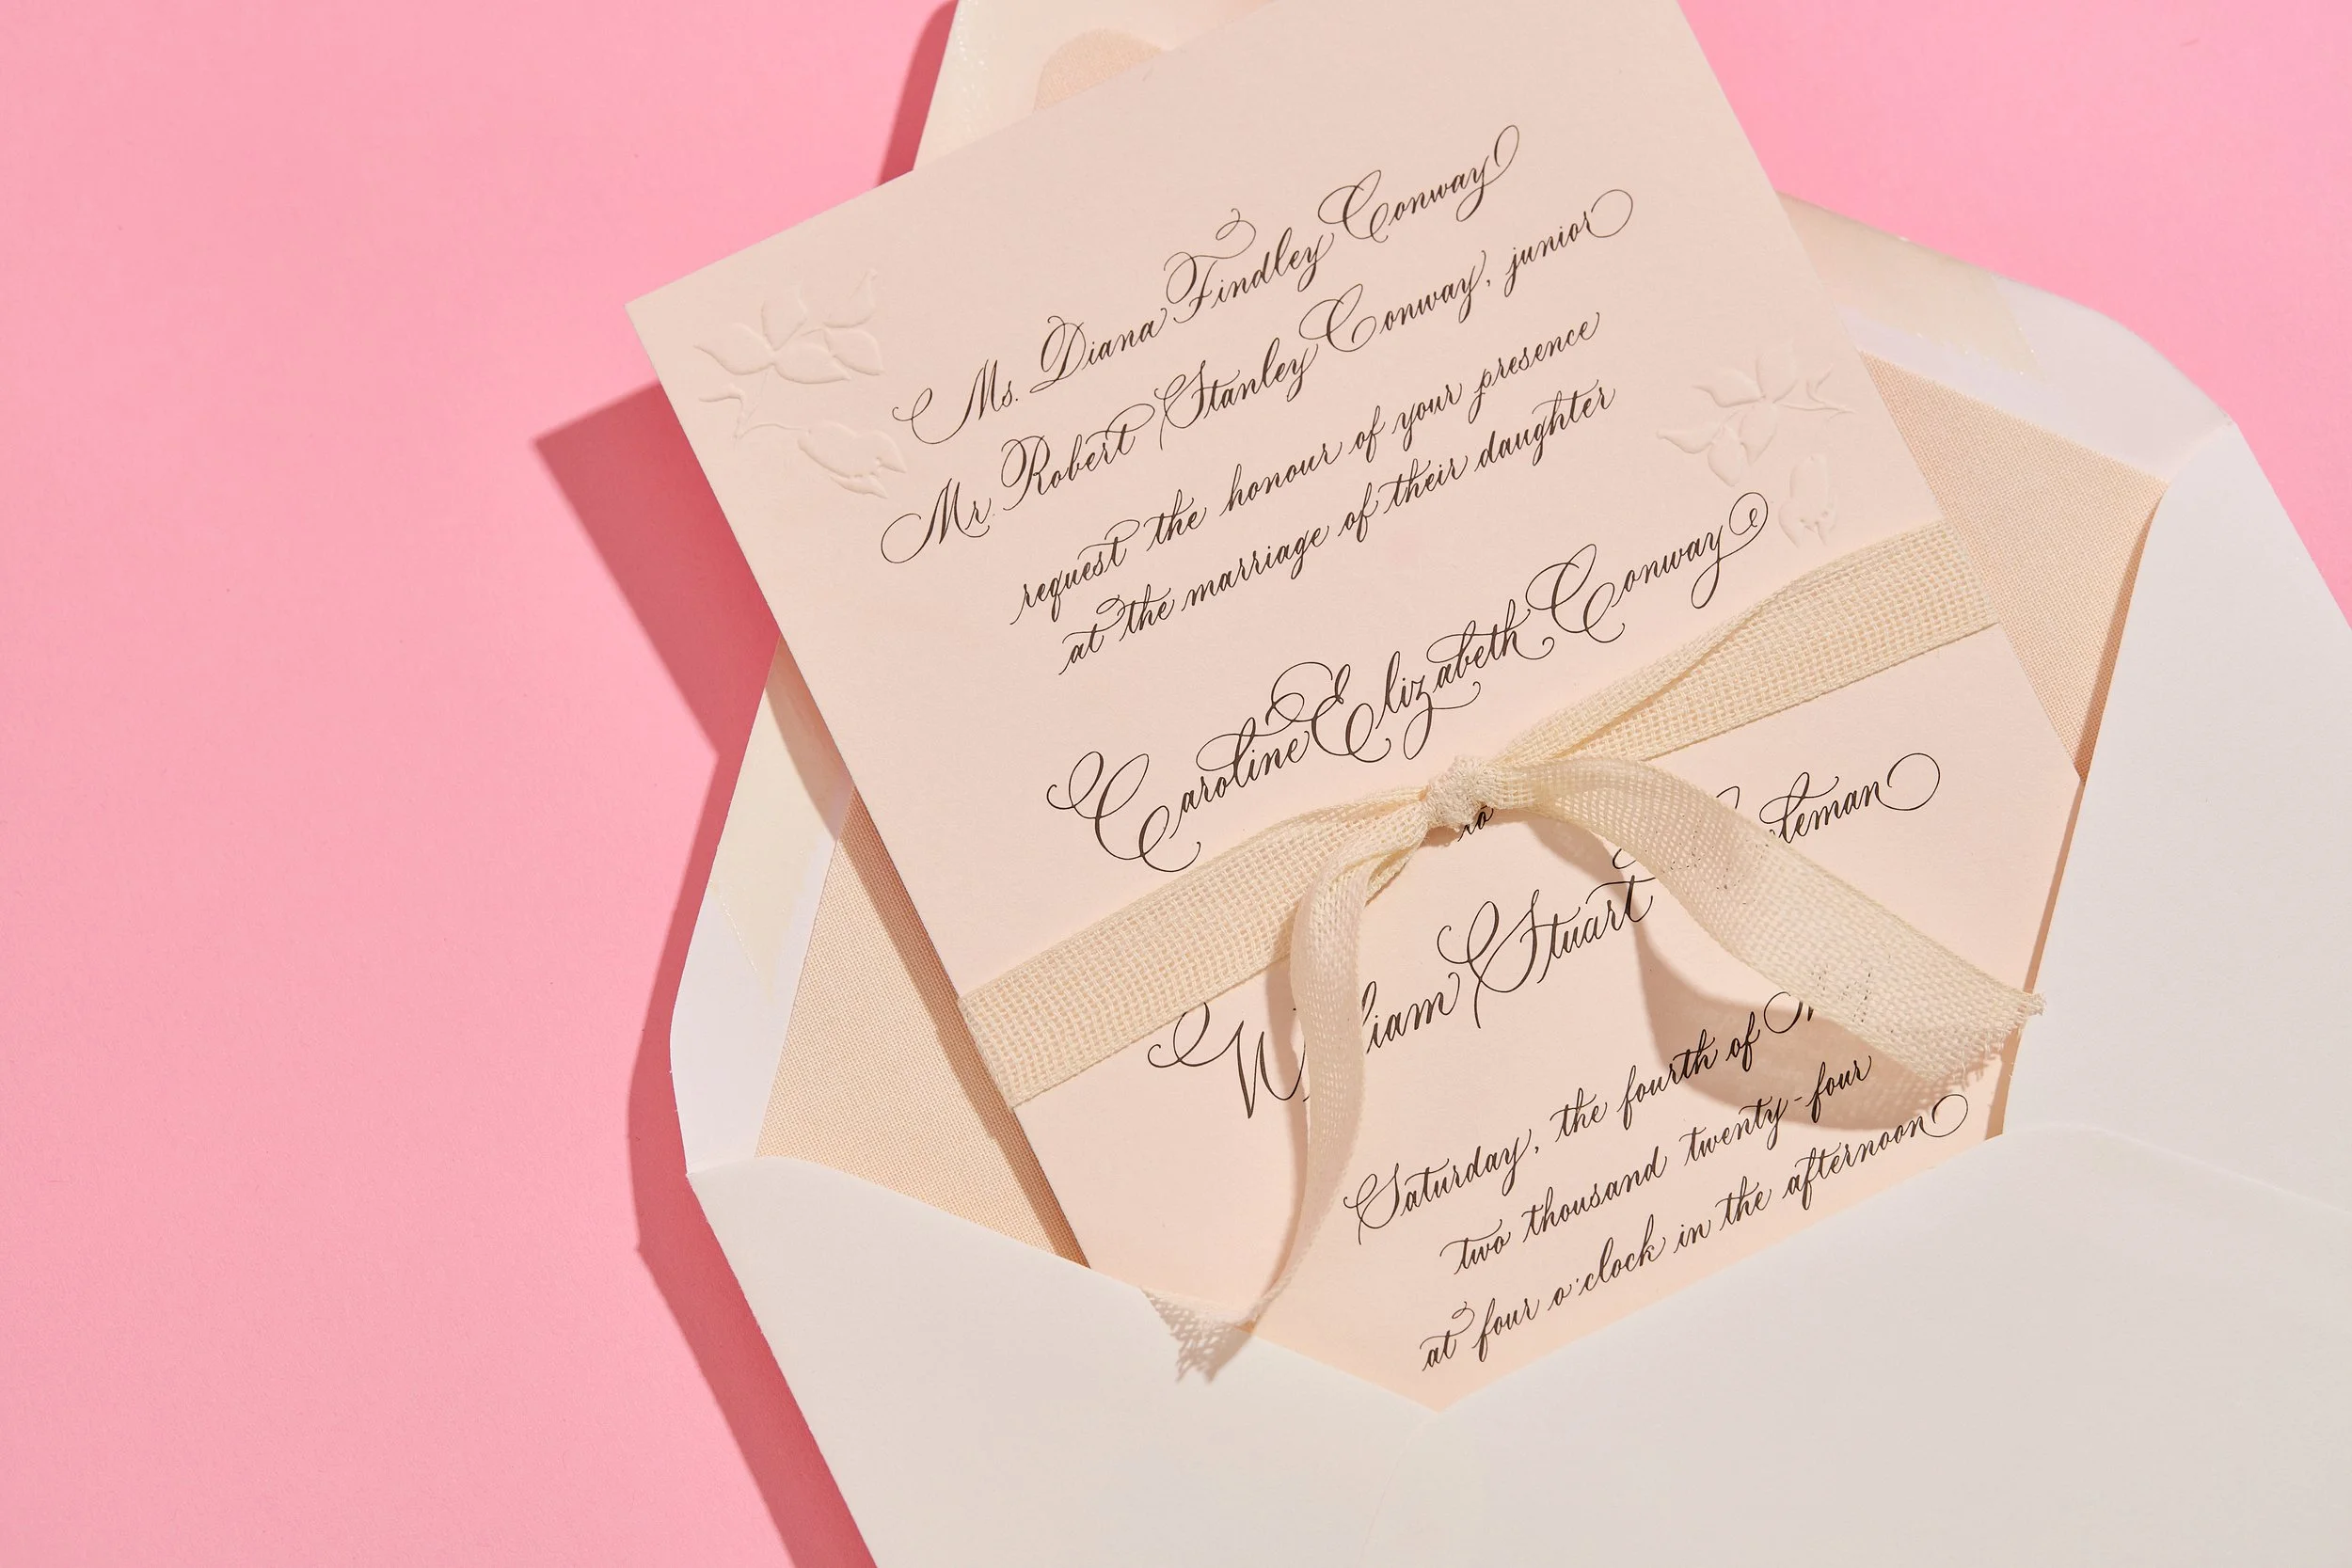 Ms. Diana Findley Conway
Mr. Robert Stanley Conway, junior
request the honour of your presence
at the marriage of their daughter
Caroline Elizabeth Conway
to
William Stuart
Saturday, the fourth of
two thousand twenty-four
at four o'clock in the afternoon